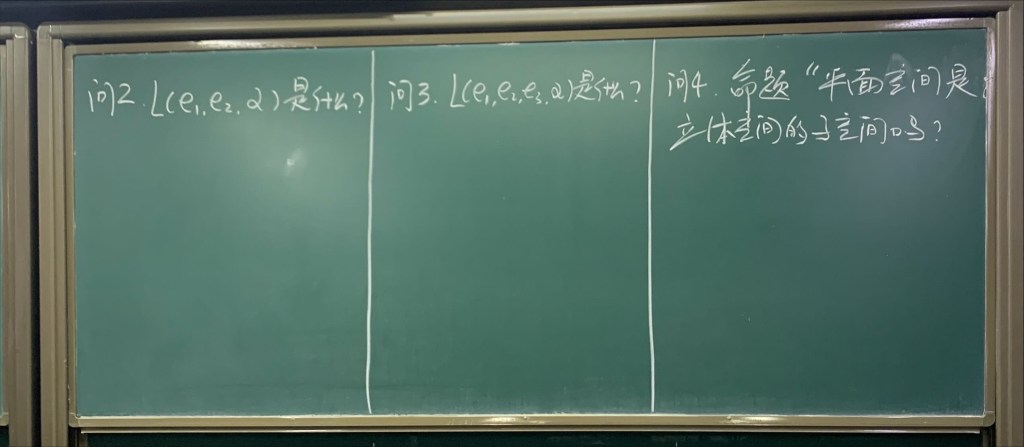 问2. L(e₁,e₂,α)是什么?
问3. L(e₁,e₂,e₃,α)是什么?
问4. 命题“平面空间是
立体空间的子空间吗?